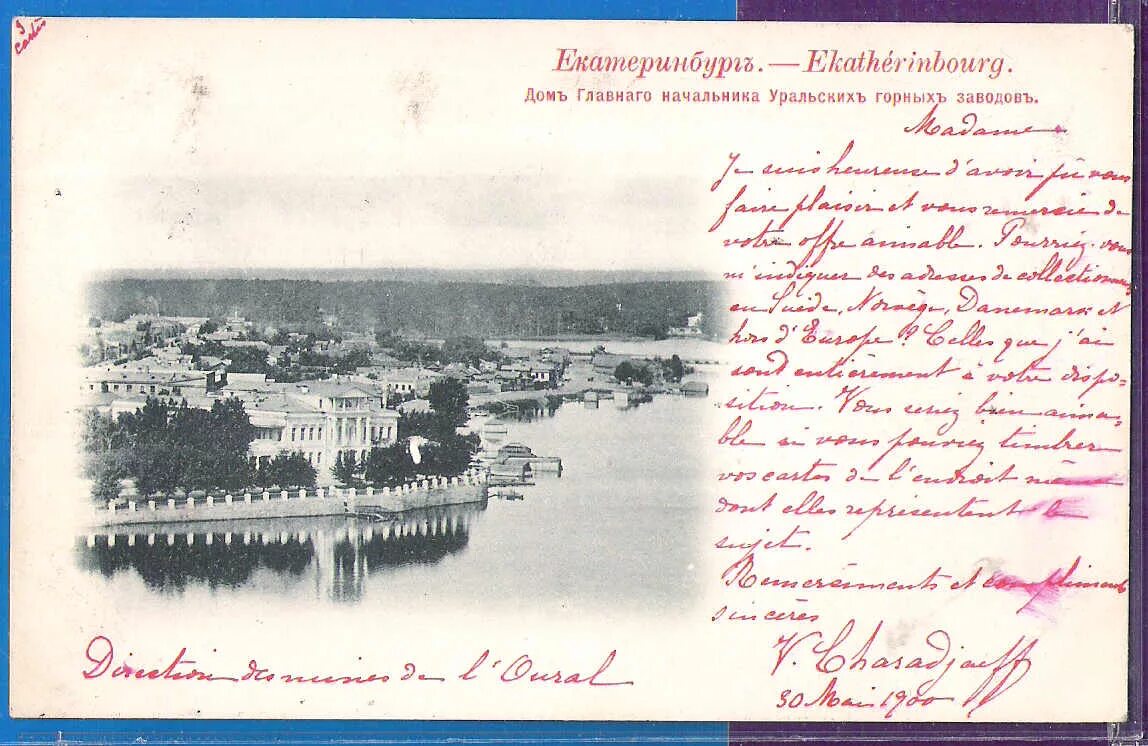 Екатеринбургъ. — Ekathérinbourg.
Домъ Главнаго начальника Уральскихъ горныхъ заводовъ.
Madame
Je suis heureuse d'avoir pû vous
faire plaisir et vous remercie de
votre offre aimable. Pourriez-vous
m'indiquer des adresses de collectionneurs
en Suède, Norvège, Danemark et
hors d'Europe? Celles que j'ai
sont entièrement à votre dispo=
sition. Vous seriez bien aima=
ble si vous pouviez timbrer
vos cartes de l'endroit même
dont elles représentent le
sujet.
Remerciments et compliments
sincères
V. Charadjaeff
30 Mai 1900
Direction des mines de l'Oural
cartes